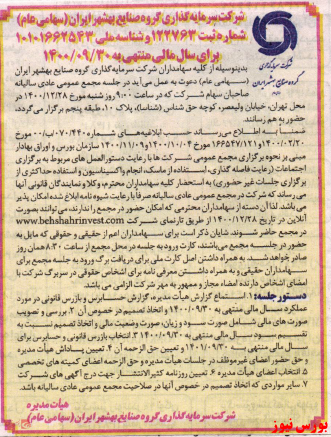 شرکت سرمایه گذاری گروه صنایع بهشهر ایران (سهامی عام)
شماره ثبت ۱۲۲۷۶۳ و شناسه ملی ۱۰۱۰۱۶۶۲۵۴۳
برای سال مالی منتهی به ۱۴۰۰/۰۹/۳۰
شرکت سرمایه گذاری
گروه صنایع بهشهر ایران
بدینوسیله از کلیه سهامداران شرکت سرمایه گذاری گروه صنایع بهشهر ایران
(سهامی عام) دعوت به عمل می آید در جلسه مجمع عمومی عادی سالیانه
صاحبان سهام شرکت که در ساعت ۹:۰۰ روز شنبه مورخ ۱۴۰۰/۱۲/۲۸ در
محل تهران، خیابان ولیعصر، کوچه حق شناس (شناسا)، پلاک ۱۰، طبقه پنجم برگزار می گردد،
حضور به هم رسانند.
ضمنا به اطلاع می رساند حسب ابلاغیه های شماره ۰۷۰/۴۴۰/ب/۰۰ مورخ
۱۴۰۰/۰۲/۲۰ و ۱۴۰۰/۱۰/۰۴ مورخ ۱۴۰۰/۱۱/۰۹ سازمان بورس و اوراق بهادار
مبنی بر نحوه برگزاری مجامع عمومی شرکت ها با رعایت دستورالعمل های مربوط به برگزاری
اجتماعات (رعایت فاصله گذاری، استفاده از ماسک، انجام واکسیناسیون و استفاده حداکثری از
برگزاری جلسات غیر حضوری) به استحضار کلیه سهامداران محترم، وکلا و نمایندگان قانونی آنها
می رساند که شرکت در مجمع عمومی عادی سالیانه صرفا با رعایت شیوه نامه ابلاغ شده امکان پذیر
می باشد. لذا آن دسته از سهامداران محترمی که امکان حضور در مجمع را ندارند، می توانند بصورت
آنلاین در تاریخ ۱۴۰۰/۱۲/۲۸ از طریق تارنمای شرکت www.behshahrinvest.com
در مجمع حاضر شوند. شایان ذکر است برای سهامداران اعم از حقیقی و حقوقی که مایل به
حضور در جلسه مجمع می باشند، کارت ورود به جلسه در محل مجمع از ساعت ۸:۳۰ همان روز
صادر خواهد شد. به همراه داشتن اصل کارت ملی برای دریافت برگ ورود به جلسه مجمع برای
سهامداران حقیقی و به همراه داشتن معرفی نامه برای اشخاص حقوقی در سربرگ شرکت با
امضای اشخاص دارنده امضاء مجاز و ممهور به مهر شرکت الزامی می باشد.
دستور جلسه: ۱. استماع گزارش هیأت مدیره، گزارش حسابرس و بازرس قانونی در مورد
عملکرد سال مالی منتهی به ۱۴۰۰/۰۹/۳۰ و اتخاذ تصمیم در خصوص آن ۲. بررسی و تصویب
صورت های مالی شامل صورت سود و زیان، صورت وضعیت مالی و اتخاذ تصمیم نسبت به
تقسیم سود سال مالی منتهی به ۱۴۰۰/۰۹/۳۰ ۳. انتخاب بازرس قانونی و حسابرس برای
سال مالی منتهی به ۱۴۰۱/۰۹/۳۰ و تعیین حق الزحمه آن ۴. تعیین پاداش هیأت مدیره
و حق حضور اعضای غیر موظف در جلسات هیأت مدیره و حق الزحمه اعضای کمیته های تخصصی
۵. انتخاب اعضای هیأت مدیره ۶. تعیین روزنامه کثیرالانتشار جهت درج آگهی های شرکت
۷. سایر مواردی که اتخاذ تصمیم در خصوص آنها در صلاحیت مجمع عمومی عادی سالیانه باشد.
هیأت مدیره
شرکت سرمایه گذاری گروه صنایع بهشهر ایران (سهامی عام)
بورس نیوز